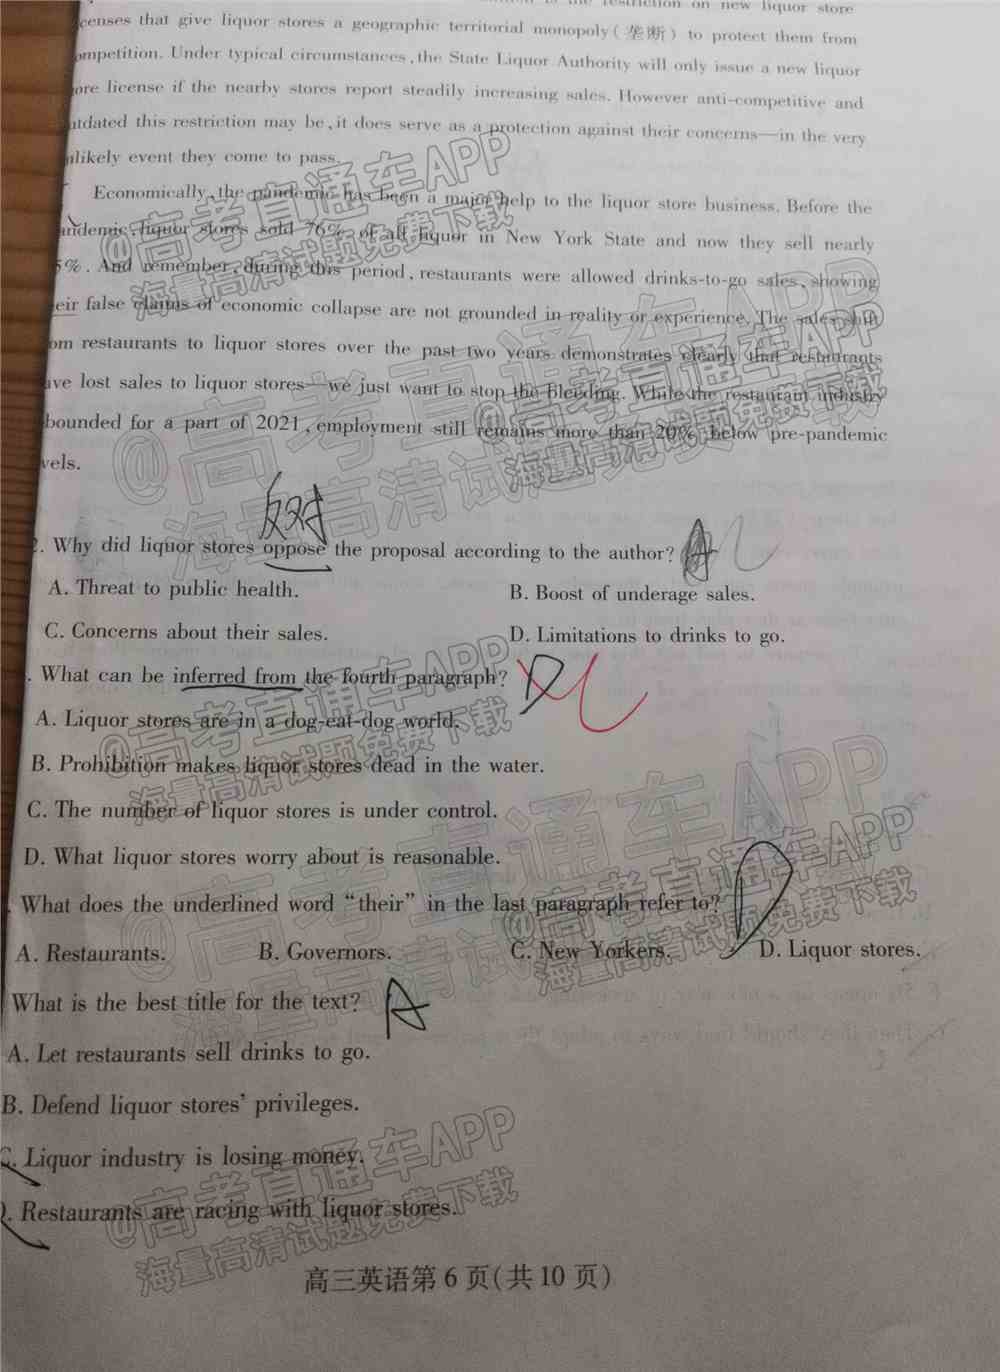 the restriction on new liquor store
censes that give liquor stores a geographic territorial monopoly(垄断) to protect them from
ompetition. Under typical circumstances, the State Liquor Authority will only issue a new liquor
ore license if the nearby stores report steadily increasing sales. However anti-competitive and
utdated this restriction may be, it does serve as a protection against their concerns—in the very
nlikely event they come to pass.
Economically, the pandemic has been a major help to the liquor store business. Before the
andemic, liquor stores sold 76% of all liquor in New York State and now they sell nearly
5%. And remember, during this period, restaurants were allowed drinks-to-go sales, showing
eir false claims of economic collapse are not grounded in reality or experience. The sales shift
om restaurants to liquor stores over the past two years demonstrates clearly that restaurants
ave lost sales to liquor stores—we just want to stop the bleeding. While the restaurant industry
bounded for a part of 2021, employment still remains more than 20% below pre-pandemic
vels.
反对
2. Why did liquor stores oppose the proposal according to the author? A
A. Threat to public health. B. Boost of underage sales.
C. Concerns about their sales. D. Limitations to drinks to go.
. What can be inferred from the fourth paragraph? D
A. Liquor stores are in a dog-eat-dog world.
B. Prohibition makes liquor stores dead in the water.
C. The number of liquor stores is under control.
D. What liquor stores worry about is reasonable.
. What does the underlined word “their” in the last paragraph refer to? D
A. Restaurants. B. Governors. C. New Yorkers. D. Liquor stores.
What is the best title for the text? A
A. Let restaurants sell drinks to go.
B. Defend liquor stores’ privileges.
C. Liquor industry is losing money.
D. Restaurants are racing with liquor stores.
高三英语第 6 页(共 10 页)
@高考直通车APP
海量高清试题免费下载
@高考直通车APP
海量高清试题免费下载
@高考直通车APP
海量高清试题免费下载
@高考直通车APP
海量高清试题免费下载
@高考直通车APP
海量高清试题免费下载
@高考直通车APP
海量高清试题免费下载
@高考直通车APP
海量高清试题免费下载